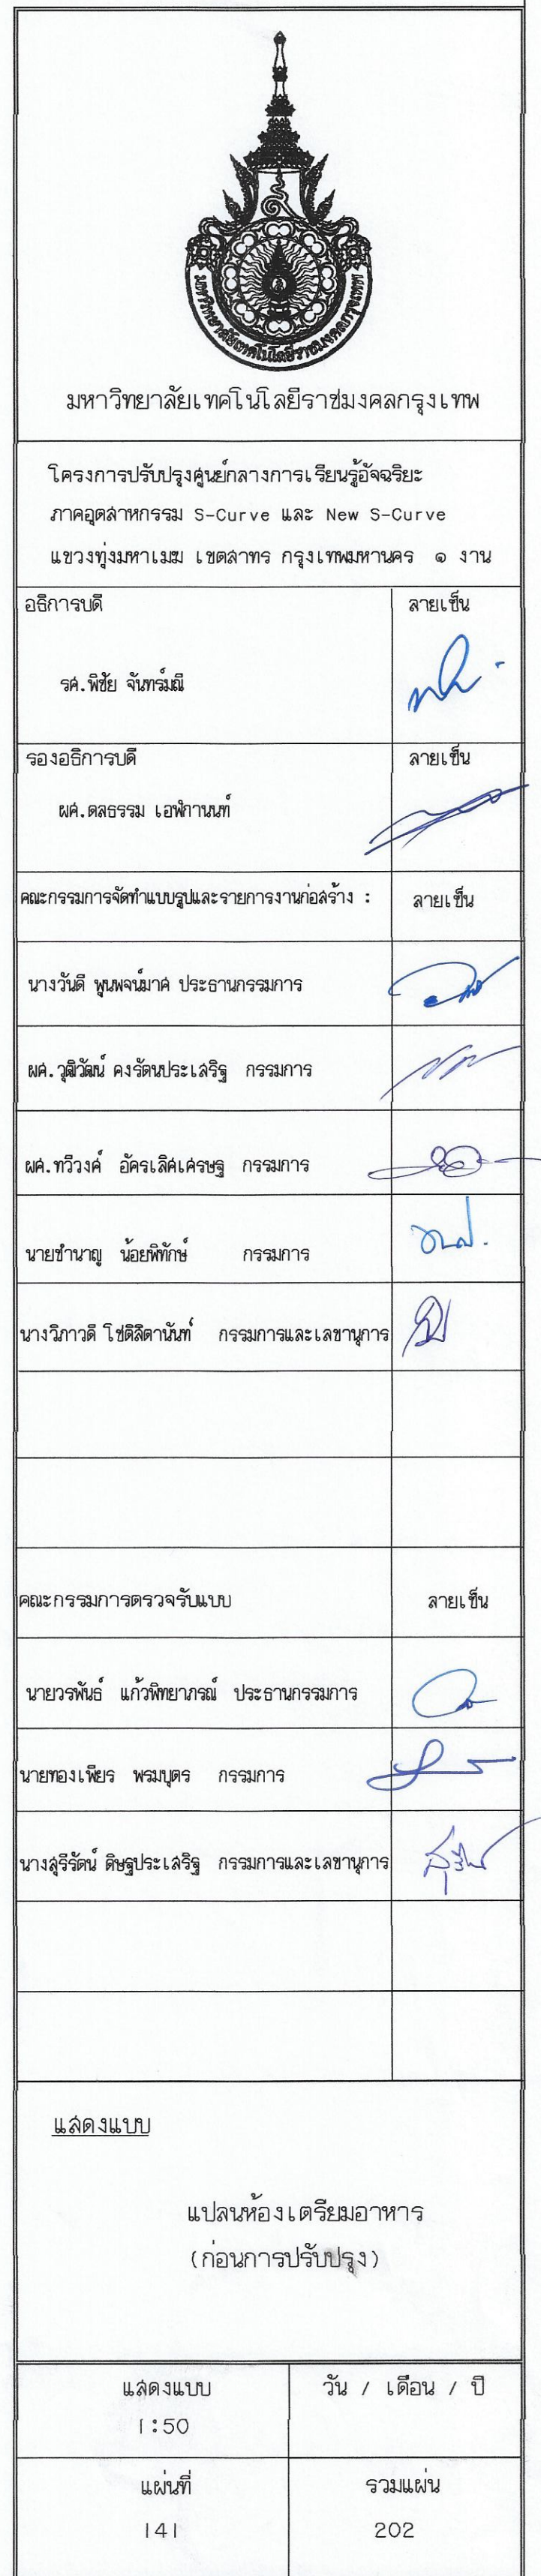 มหาวิทยาลัยเทคโนโลยีราชมงคลกรุงเทพ
มหาวิทยาลัยเทคโนโลยีราชมงคลกรุงเทพ
โครงการปรับปรุงศูนย์กลางการเรียนรู้อัจฉริยะ
ภาคอุตสาหกรรม S-Curve และ New S-Curve
แขวงทุ่งมหาเมฆ เขตสาทร กรุงเทพมหานคร ๑ งาน
อธิการบดี ลายเซ็น
รศ.พิชัย จันทร์มณี
รองอธิการบดี ลายเซ็น
ผศ.ดลธรรม เอฬกานนท์
คณะกรรมการจัดทำแบบรูปและรายการงานก่อสร้าง : ลายเซ็น
นางวันดี พูนพจน์มาศ ประธานกรรมการ
ผศ.วุฒิวัฒน์ คงรัตนประเสริฐ กรรมการ
ผศ.ทวีวงศ์ อัครเลิศเศรษฐ กรรมการ
นายชำนาญ น้อยพิทักษ์ กรรมการ
นางวิภาวดี โชติลิตานันท์ กรรมการและเลขานุการ
คณะกรรมการตรวจรับแบบ ลายเซ็น
นายวรพันธ์ แก้วพิทยาภรณ์ ประธานกรรมการ
นายทองเพียร พรมบุตร กรรมการ
นางสุรีรัตน์ ดิษฐประเสริฐ กรรมการและเลขานุการ
แสดงแบบ
แปลนห้องเตรียมอาหาร
(ก่อนการปรับปรุง)
แสดงแบบ วัน / เดือน / ปี
1:50
แผ่นที่ รวมแผ่น
141 202